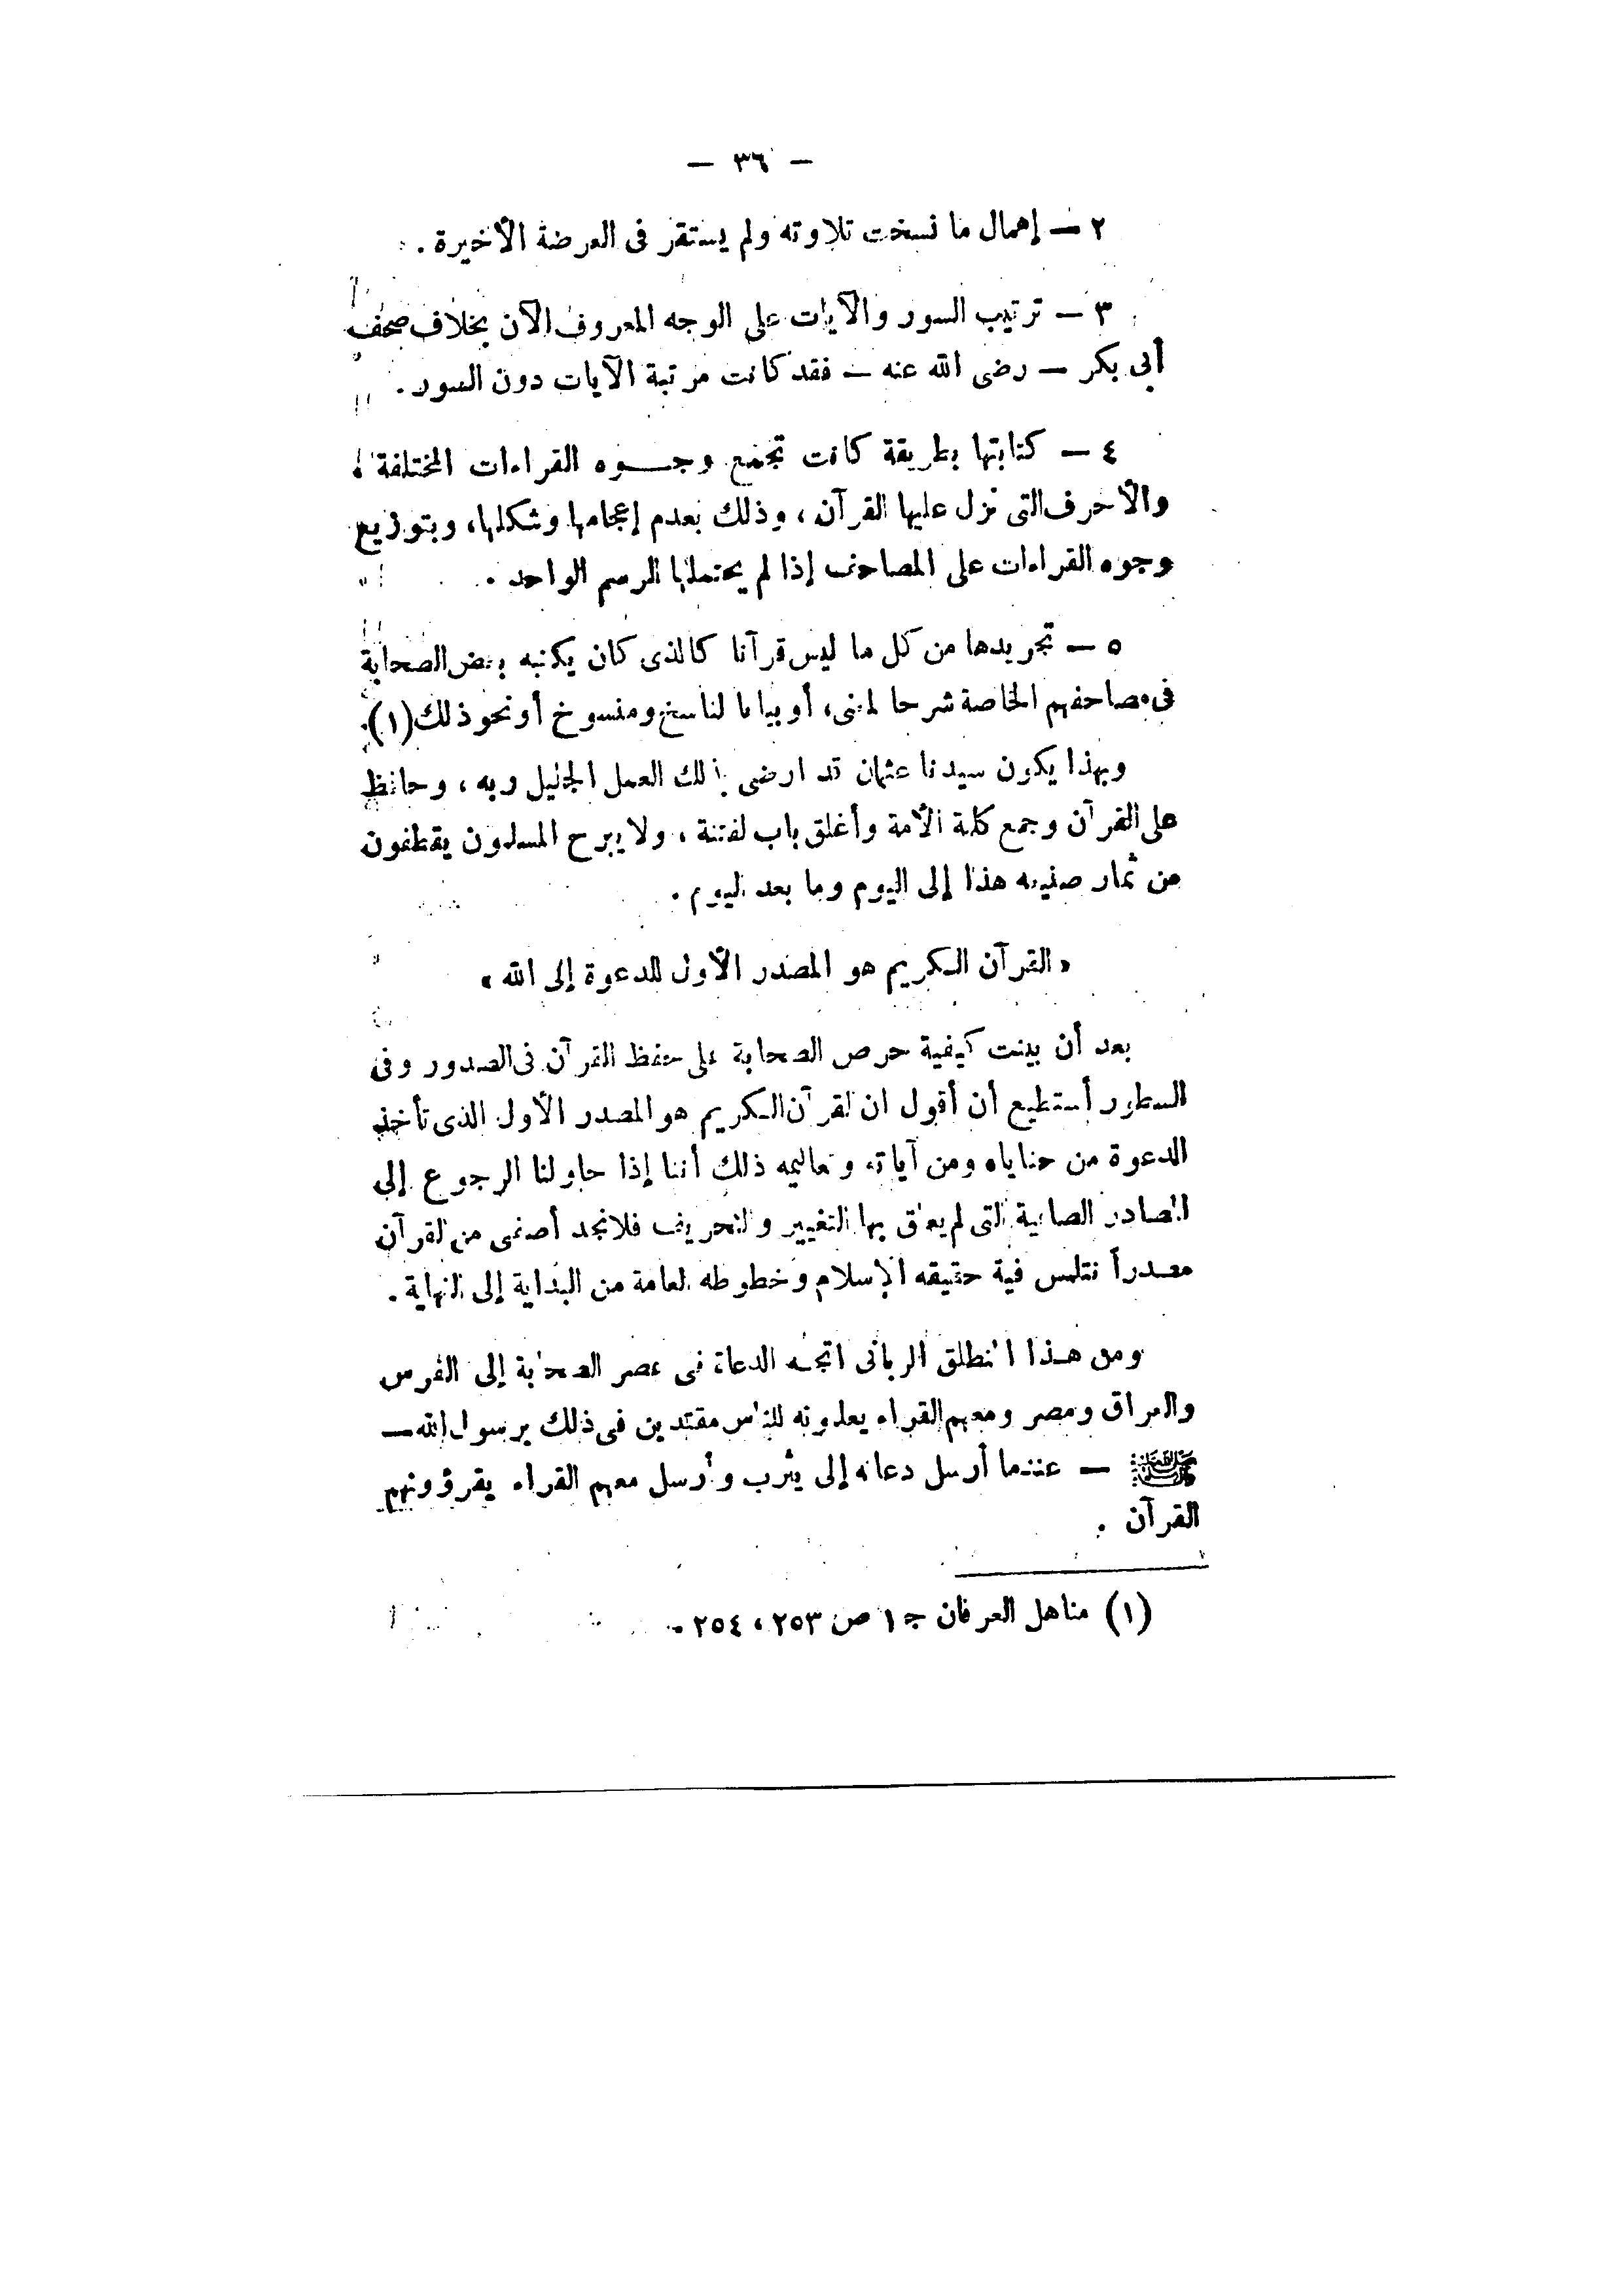 — ٣٦ —
٢ — إهمال ما نسخت تلاوته ولم يستقر فى العرضة الأخيرة .
٣ — ترتيب السور والآيات على الوجه المعروف الآن بخلاف صحف
أبى بكر — رضى الله عنه — فقد كانت مرتبة الآيات دون السور .
٤ — كتابتها بطريقة كانت تجمع وجـــوه القراءات المختلفة ،
والأحرف التى نزل عليها القرآن ، وذلك بعدم إعجامها وشكلها ، وبتوزيع
وجوه القراءات على المصاحف إذا لم يحتملها الرسم الواحد .
٥ — تجريدها من كل ما ليس قرآنا كالذى كان يكتبه بعض الصحابة
فى مصاحفهم الخاصة شرحا لمعنى ، أو بيانا لناسخ ومنسوخ أو نحو ذلك (١) .
وبهذا يكون سيدنا عثمان قد ارضى بذلك العمل الجليل ربه ، وحافظ
على القرآن وجمع كلمة الأمة وأغلق باب لفتنة ، ولا يبرح المسلمون يقطفون
من ثمار صنيعه هذا إلى اليوم وما بعد اليوم .
« القرآن الـكريم هو المصدر الأول للدعوة إلى الله »
بعد أن بينت كيفية حرص الصحابة على حفظ القرآن فى الصدور وفى
السطور أستطيع أن أقول ان القرآن الـكريم هو المصدر الأول الذى تأخذ
الدعوة من حناياه ومن آياته وتعاليمه ذلك أننا إذا حاولنا الرجوع إلى
المصادر الصافية التى لم يعلق بها التغيير والتحريف فلا نجد أصفى من القرآن
مصـدراً نتلمس فية حقيقه الإسلام وخطوطه العامة من البداية إلى النهاية .
ومن هـذا المنطلق الربانى اتجـه الدعاة فى عصر الصحابة إلى الفرس
والعراق ومصر ومعهم القراء يعلمونه للناس مقتدين فى ذلك برسول الله —
ﷺ — عندما أرسل دعاته إلى يثرب وأرسل معهم القراء يقرؤونهم
القرآن .
(١) مناهل العرفان جـ ١ ص ٢٥٣ ، ٢٥٤ .